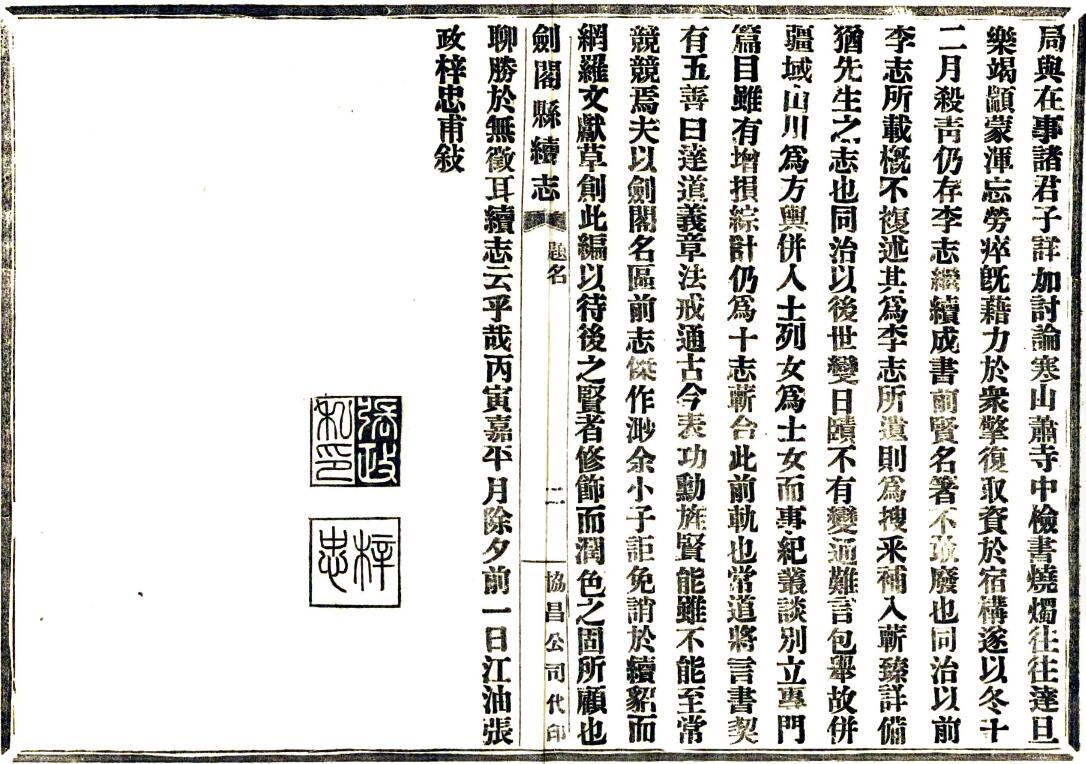 局與在事諸君子詳加討論寒山蕭寺中檢書燒燭往往達旦
樂竭顓蒙渾忘勞瘁既藉力於衆擎復取資於宿構遂以冬十
二月殺靑仍存李志繼續成書前賢名箸不敢廢也同治以前
李志所載槪不複述其爲李志所遺則爲搜采補入蘄臻詳備
猶先生之志也同治以後世變日賾不有變通難言包舉故併
疆域山川爲方輿併人士列女爲士女而事紀叢談別立專門
篇目雖有增損綜計仍爲十志蘄合此前軌也常道將言書契
有五善曰達道義章法戒通古今表功勳旌賢能雖不能至常
競競焉夫以劍閣名區前志傑作渺余小子詎免誚於續貂而
網羅文獻草創此編以待後之賢者修飾而潤色之固所願也
劍閣縣續志 題名 二 協昌公司代印
聊勝於無徵耳續志云乎哉丙寅嘉平月除夕前一日江油張
政梓忠甫敍
張政私印
梓忠